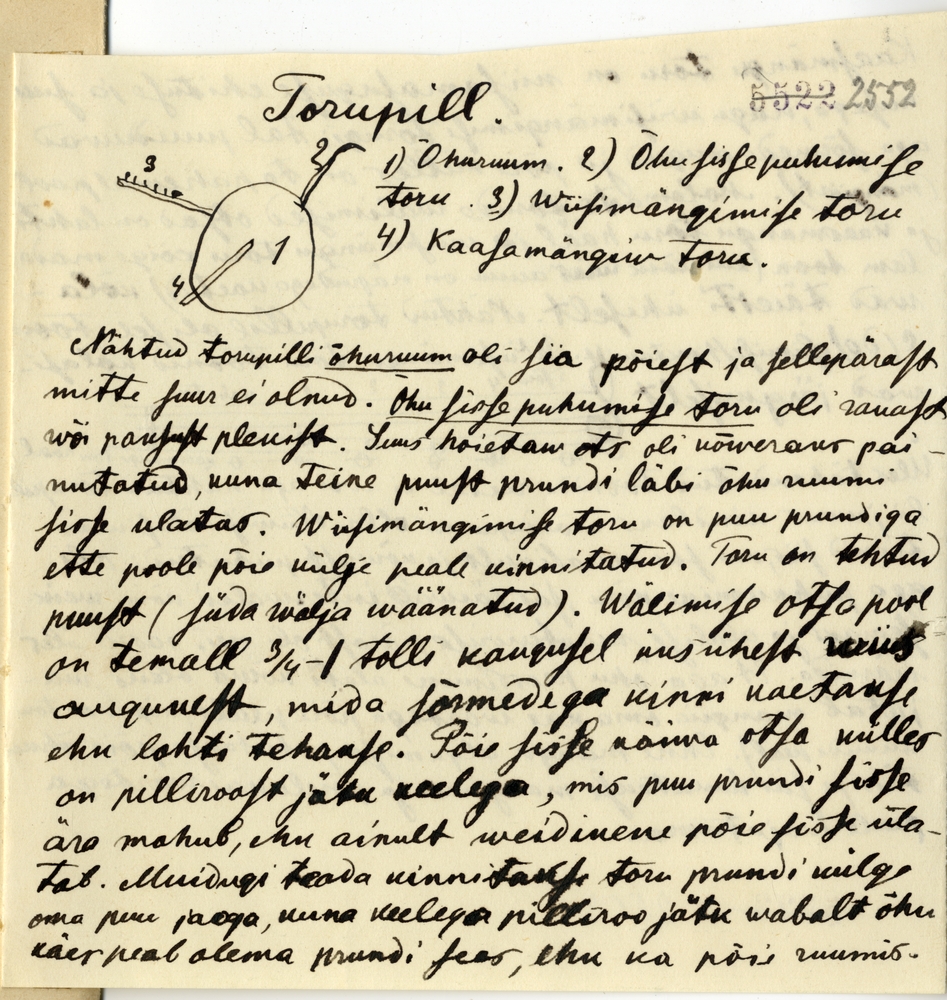 Torupill.
5522 2552
1) Õhuruum. 2) Õhu sissepuhumise
toru. 3) Wiisimängimise toru
4) Kaasamängiw toru.
3
2
1
4
Nähtud torupilli õhuruum oli sia põiest ja sellepärast
mitte suur ei olnud. Õhu sissepuhumise toru oli rauast
wõi paksust plekist. Suus hoietaw ots oli kõweraks pai-
nutatud, kuna teine puust prundi läbi õhu ruumi
sisse ulatas. Wiisimängimise toru on puu prundiga
ette poole põie külje peale kinnitatud. Toru on tehtud
puust (süda wälja wäänatud). Wälimise otsa pool
on temall 3/4-1 tolli kaugusel üksühest wiis
augukest, mida sõrmedega kinni kaetakse
ehk lahti tehakse. Põie sisse käiwa otsa külles
on pilliroost jätk keelega, mis puu prundi sisse
ära mahub, ehk ainult weidikene põie sisse üla-
tab. Muidugi teada kinnitakse toru prundi külge
oma puu jaoga, kuna keelega pilliroo jätk wabalt õhu
käes peab olema prundi sees, ehk ka põie ruumis.